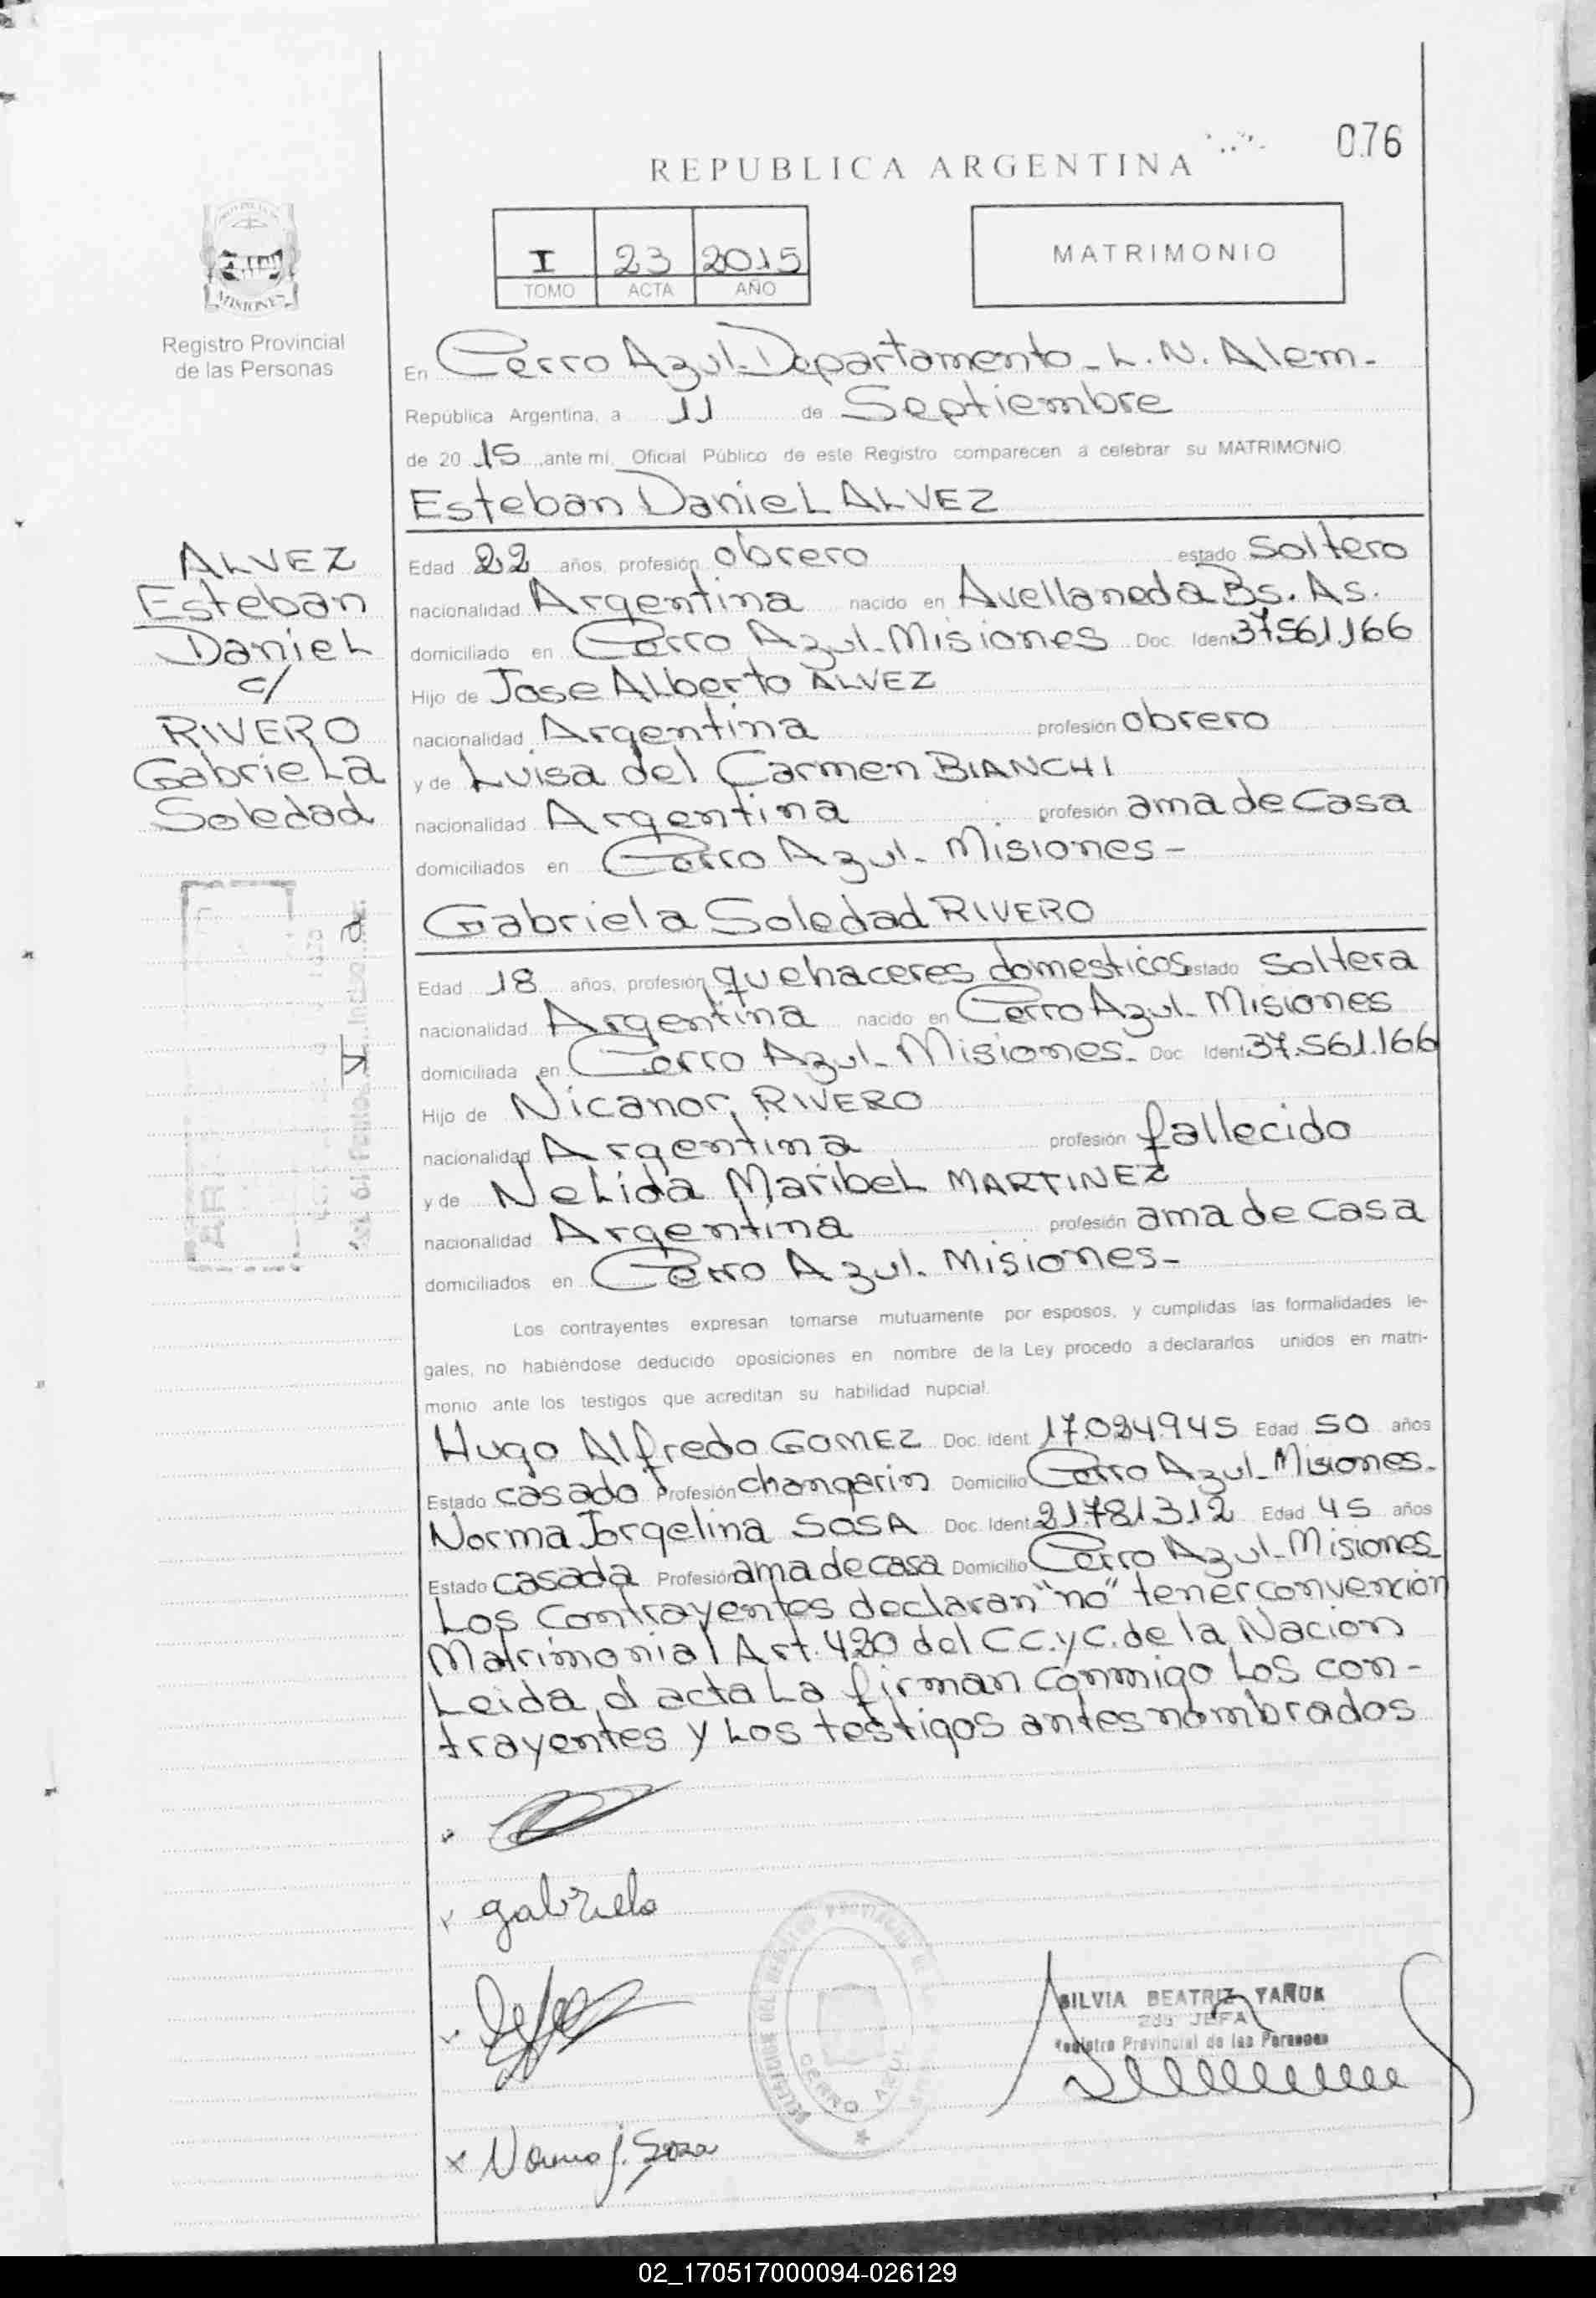 076
REPUBLICA ARGENTINA
I 23 2015
TOMO ACTA AÑO
MATRIMONIO
MISIONES
Registro Provincial
de las Personas
En Cerro Azul-Departamento-L.N. Alem-
República Argentina, a 11 de Septiembre
de 2015, ante mi, Oficial Público de este Registro comparecen a celebrar su MATRIMONIO
Esteban Daniel ALVEZ
ALVEZ
Esteban
Daniel
c/
RIVERO
Gabriela
Soledad
Edad 22 años, profesión obrero estado Soltero
nacionalidad Argentina nacido en Avellaneda Bs. As.
domiciliado en Cerro Azul-Misiones Doc. Ident 37.561.166
Hijo de Jose Alberto ALVEZ
nacionalidad Argentina profesión obrero
y de Luisa del Carmen BIANCHI
nacionalidad Argentina profesión ama de Casa
domiciliados en Cerro Azul-Misiones-
Gabriela Soledad RIVERO
Edad 18 años, profesión quehaceres domesticos estado Soltera
nacionalidad Argentina nacido en Cerro Azul-Misiones
domiciliada en Cerro Azul-Misiones- Doc. Ident. 37.561.166
Hijo de Nicanor RIVERO
nacionalidad Argentina profesión fallecido
y de Nelida Maribel MARTINEZ
nacionalidad Argentina profesión ama de Casa
domiciliados en Cerro Azul-Misiones-
Los contrayentes expresan tomarse mutuamente por esposos, y cumplidas las formalidades le-
gales, no habiéndose deducido oposiciones en nombre de la Ley procedo a declararlos unidos en matri-
monio ante los testigos que acreditan su habilidad nupcial.
Hugo Alfredo GOMEZ Doc. Ident 17.024.945 Edad 50 años
Estado casado Profesión changarin Domicilio Cerro Azul-Misiones-
Norma Jorgelina SOSA Doc. Ident. 21.781.312 Edad 45 años
Estado casada Profesión ama de casa Domicilio Cerro Azul-Misiones
Los Contrayentes declaran "no" tener convención
Matrimonial Art. 420 del C.C.y C. de la Nacion
Leida el acta La firman conmigo Los con-
trayentes y Los testigos antes nombrados
gabriela
SILVIA BEATRIZ YAÑUK
2da. JEFA
Registro Provincial de las Personas
CERRO AZUL
x Norma J. Sosa
02_170517000094-026129